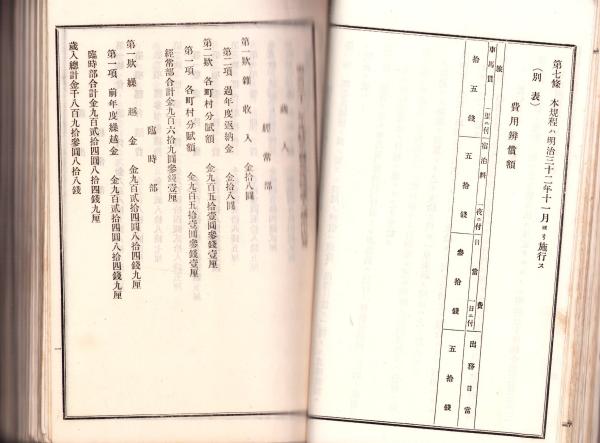 第七條　本規程ハ明治三十二年十一月ヨリ施行ス
（別表）
費用辨償額
旅費
車馬賃　一里ニ付
宿泊料　一夜ニ付
日當　一日ニ付
出務日當
拾五錢
五拾錢
參拾錢
五拾錢
歲入
經常部
第一款　雜收入　金拾八圓
第二項　過年度返納金　金拾八圓
第二款　各町村分賦額　金九百五拾壹圓參錢壹厘
第一項　各町村分賦額　金九百五拾壹圓參錢壹厘
經常部合計金九百六拾九圓參錢壹厘
臨時部
第一款　繰越金　金九百貳拾四圓八拾四錢九厘
第一項　前年度繰越金　金九百貳拾四圓八拾四錢九厘
臨時部合計金九百貳拾四圓八拾四錢九厘
歲入總計金千八百九拾參圓八拾八錢